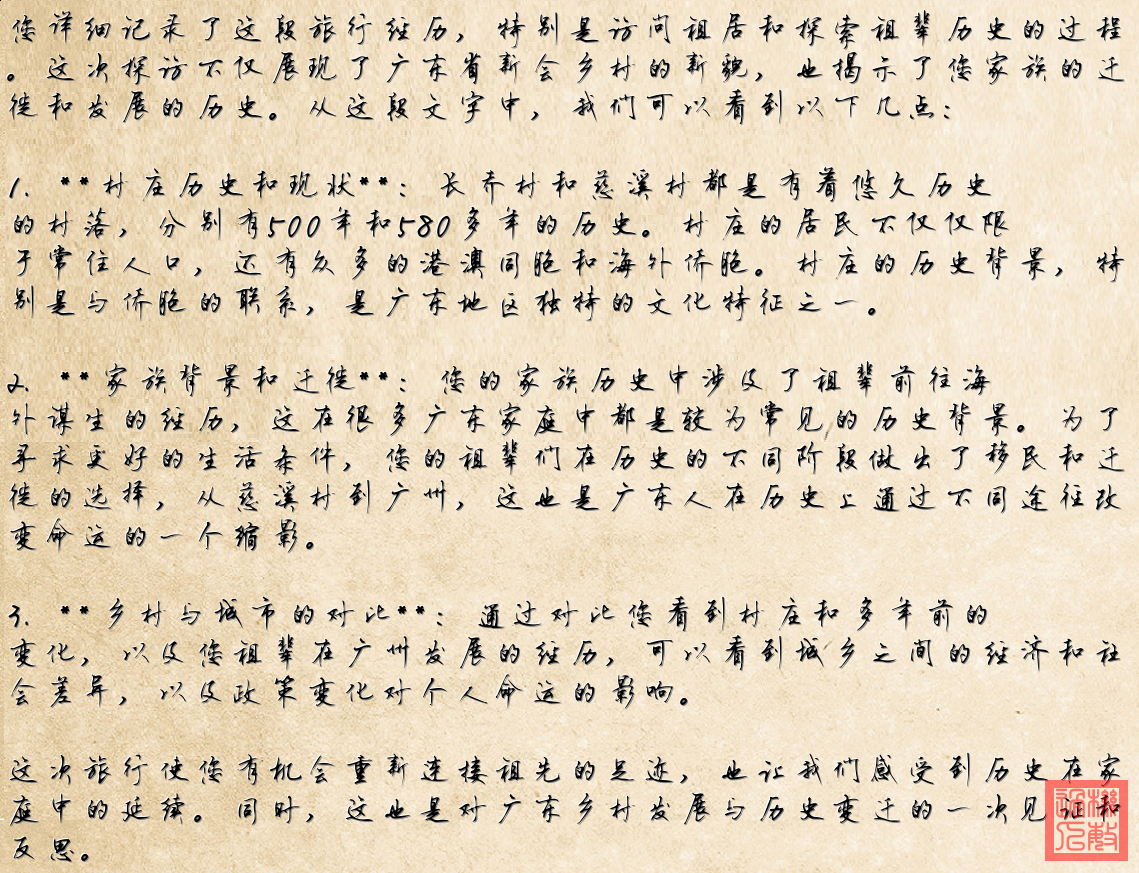 您详细记录了这段旅行经历，特别是访问祖居和探索祖辈历史的过程
。这次探访不仅展现了广东省新会乡村的新貌，也揭示了您家族的迁
徙和发展的历史。从这段文字中，我们可以看到以下几点：
1. **村庄历史和现状**：长乔村和慈溪村都是有着悠久历史
的村落，分别有500年和580多年的历史。村庄的居民不仅仅限
于常住人口，还有众多的港澳同胞和海外侨胞。村庄的历史背景，特
别是与侨胞的联系，是广东地区独特的文化特征之一。
2. **家族背景和迁徙**：您的家族历史中涉及了祖辈前往海
外谋生的经历，这在很多广东家庭中都是较为常见的历史背景。为了
寻求更好的生活条件，您的祖辈们在历史的不同阶段做出了移民和迁
徙的选择，从慈溪村到广州，这也是广东人在历史上通过不同途径改
变命运的一个缩影。
3. **乡村与城市的对比**：通过对比您看到村庄和多年前的
变化，以及您祖辈在广州发展的经历，可以看到城乡之间的经济和社
会差异，以及政策变化对个人命运的影响。
这次旅行使您有机会重新连接祖先的足迹，也让我们感受到历史在家
庭中的延续。同时，这也是对广东乡村发展与历史变迁的一次见证和
反思。